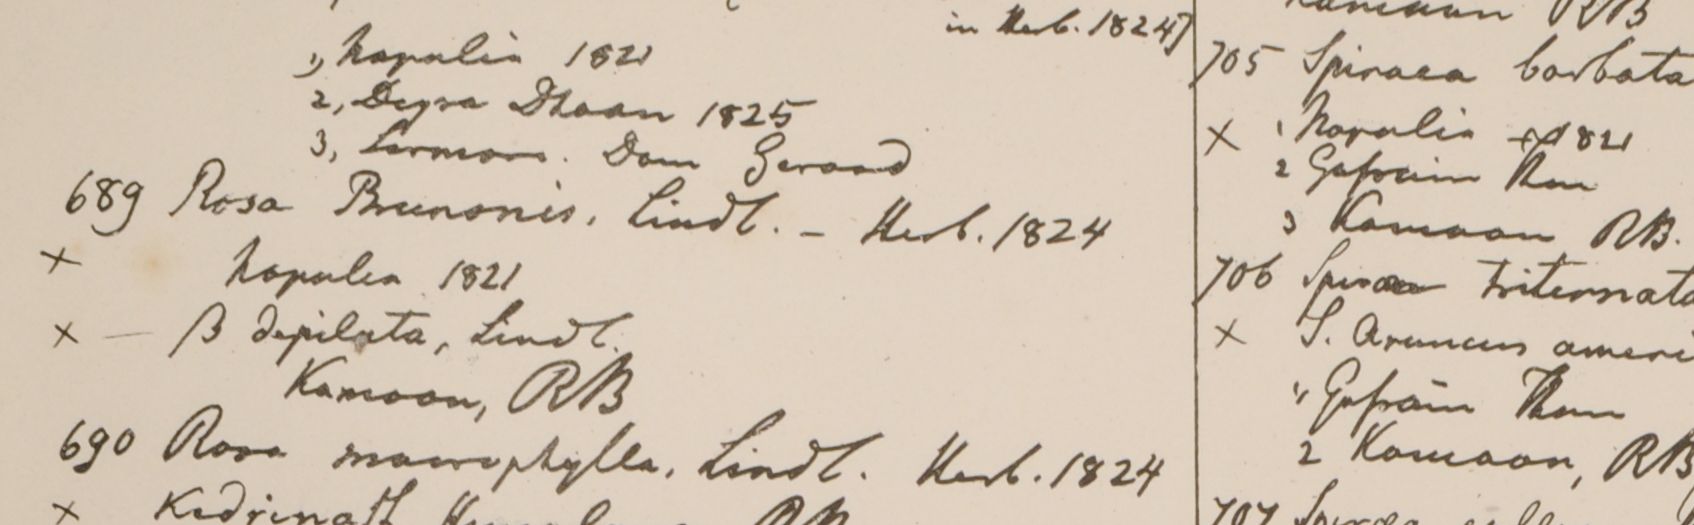 in Herb. 1824)
1, Napalia 1821
2, Deyra Dhoon 1825
3, Sirmore. Dom Gerard
689 Rosa Brunonis, Lindl. – Herb. 1824
× Napalia 1821
× — β depilata, Lindl.
Kamoon, RB
690 Rosa macrophylla, Lindl. Herb. 1824
× Kedrinath RB
Kamaon RB
705 Spiraea barbata
× 1 Napalia 1821
2 Gosain Than
3 Kamaon RB.
706 Spiraea triternata
× S. Aruncus ameri
1, Gosain Than
2 Kamaon, RB
707 Spiraea